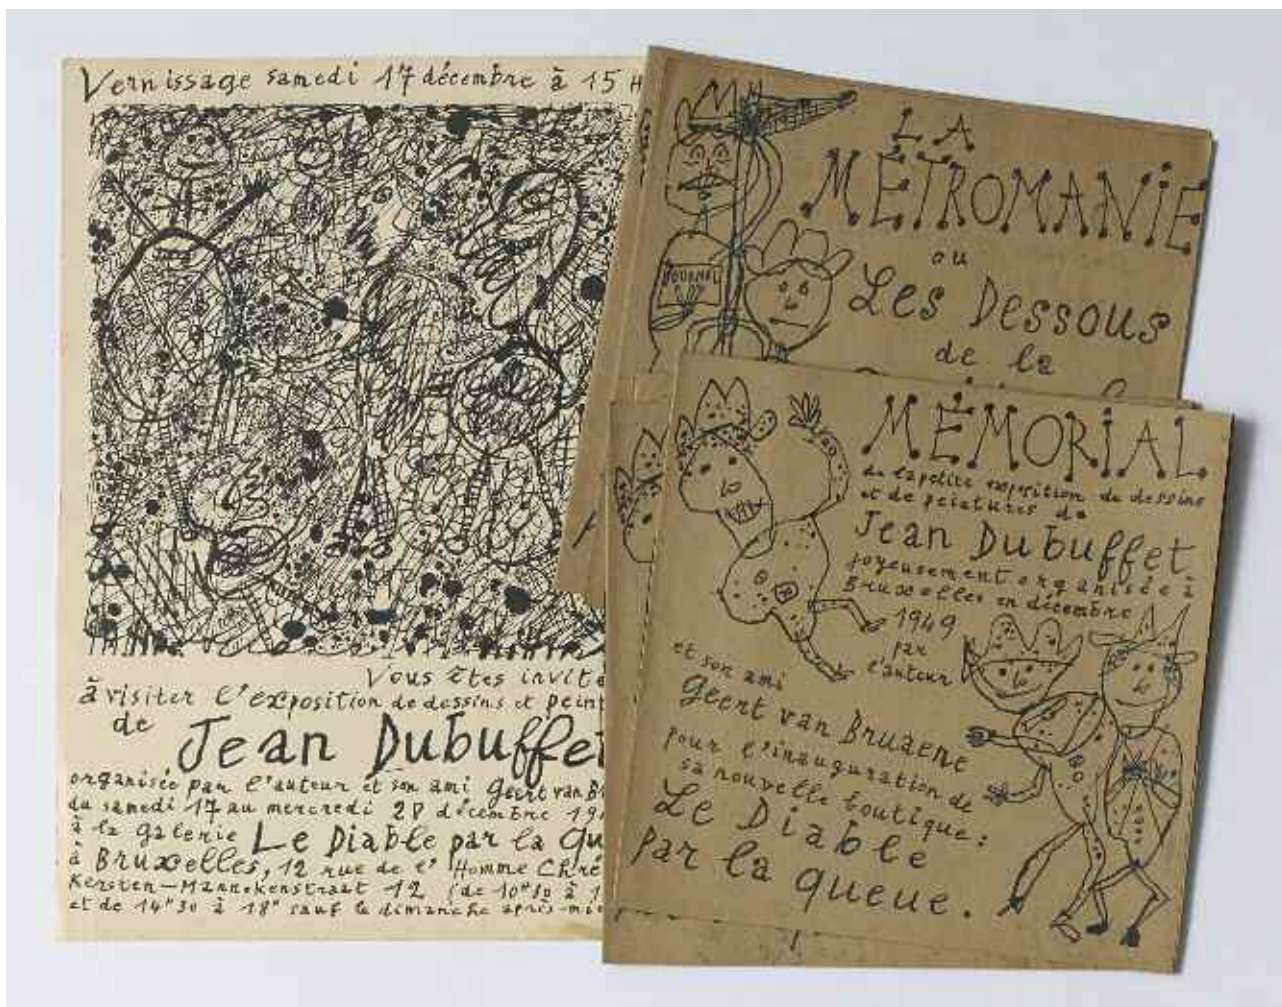 Vernissage samedi 17 décembre à 15 H
Vous êtes invité
à visiter l'exposition de dessins et peint
de Jean Dubuffet
organisée par l'auteur et son ami Geert van B
du samedi 17 au mercredi 28 décembre 19
à la galerie Le Diable par la qu
à Bruxelles, 12 rue de l'Homme Chré
Kersten-Mannekenstraat 12 (de 10H30 à 1
et de 14H30 à 18H sauf le dimanche après-mi
LA
MÉTROMANIE
ou
Les Dessous
de la
JOURNAL
MÉMORIAL
de la petite exposition de dessins
et de peintures de
Jean Dubuffet
joyeusement organisée à
Bruxelles en décembre
1949
par
l'auteur
et son ami
Geert van Bruaene
pour l'inauguration de
sa nouvelle boutique :
Le Diable
par la queue.